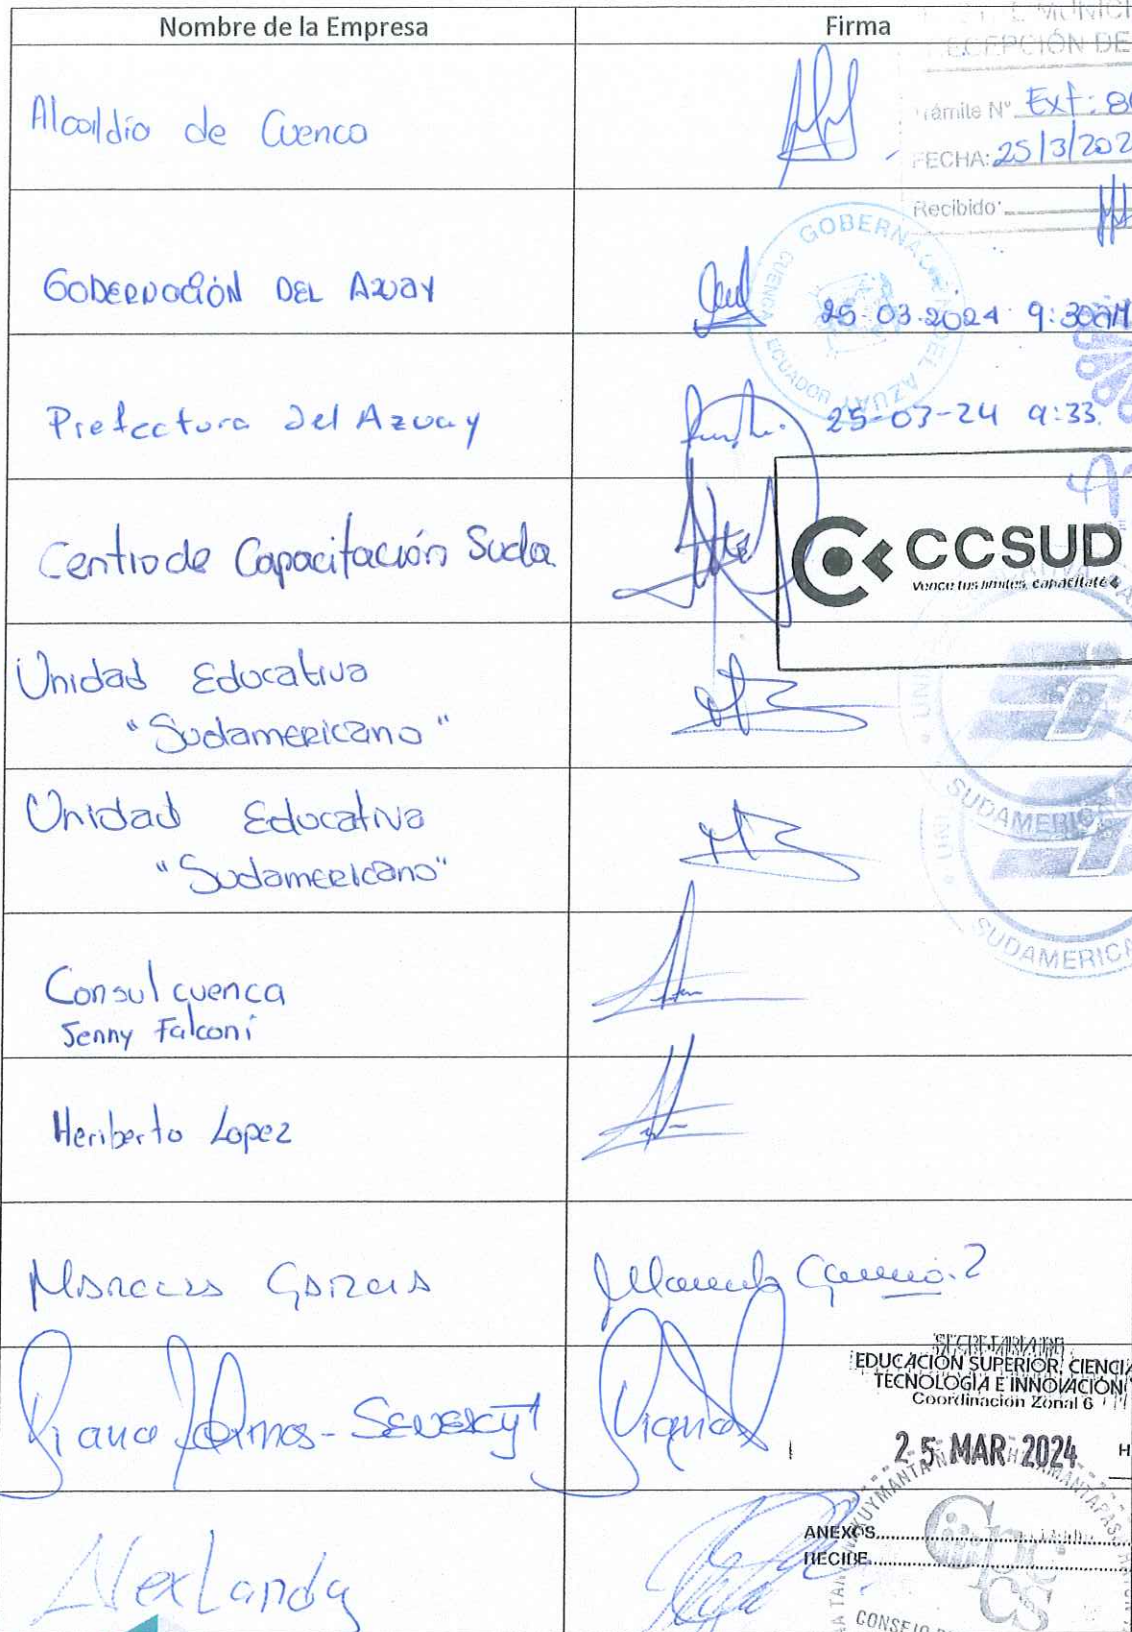 Nombre de la Empresa
Firma
RECEPCIÓN DE
Alcaldía de Cuenca
Trámite N° Ext: 8
FECHA: 25/3/202
Recibido:
GOBERNACIÓN DEL AZUAY
GOBERNACIÓN DEL AZUAY
CUENCA ECUADOR
25 03.2024 9:30AM
Prefectura del Azuay
25-03-24 9:33.
Centro de Capacitación Suda
CCSUD
Vence tus límites, capacítate
Unidad Educativa
"Sudamericano"
SUDAMERICA
Unidad Educativa
"Sudamericano"
SUDAMERICA
Consulcuenca
Jenny Falconí
Heriberto Lopez
Marcela Garcia
SECRETARÍA DE
EDUCACIÓN SUPERIOR, CIENCIA
TECNOLOGÍA E INNOVACIÓN
Coordinación Zonal 6
Diana Ramos - Senescyt
25 MAR 2024 H
ANEXOS
RECIBE
Alex Landy
Cpccs
CONSEJO